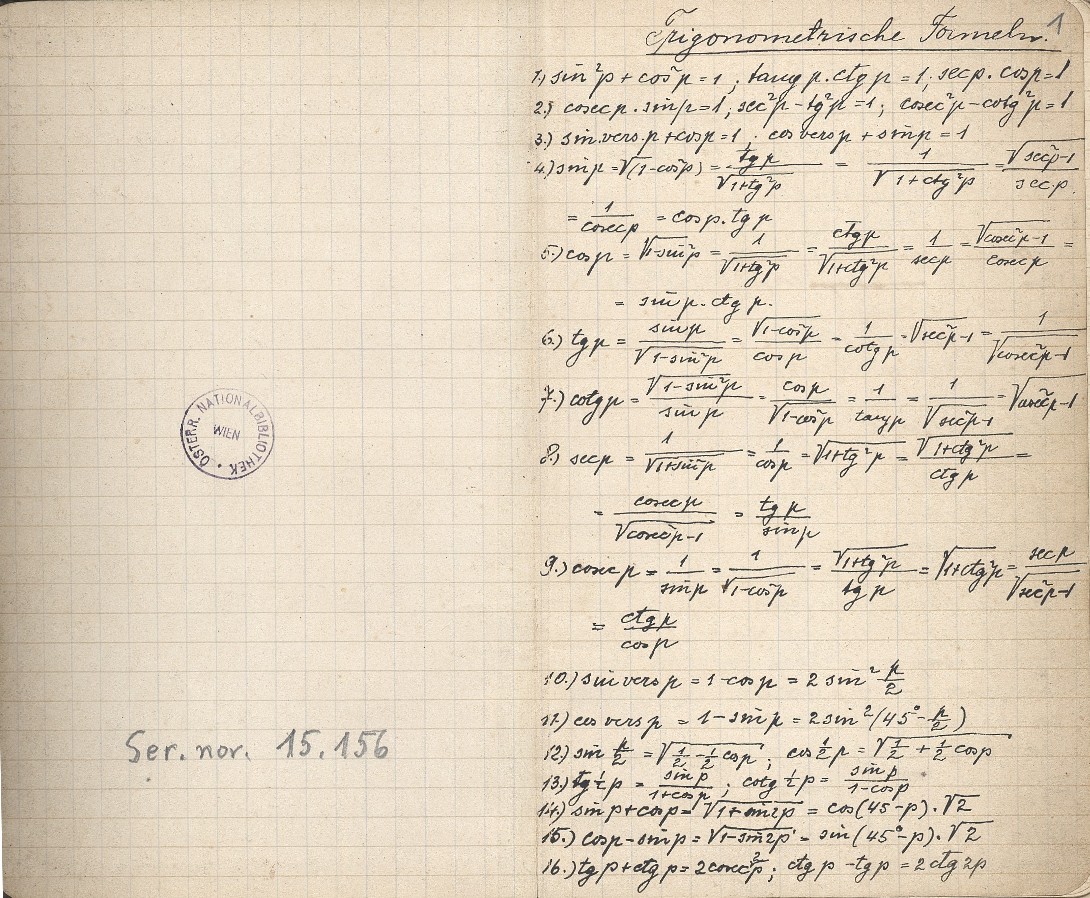 ÖSTERR. NATIONALBIBLIOTHEK • WIEN
Ser. nor. 15.156
1
Trigonometrische Formeln.
1.) sin²p + cos²p = 1; tang p . ctg p = 1; sec p . cosp = 1
2.) cosec p . sin p = 1; sec²p - tg²p = 1; cosec²p - cotg²p = 1
3.) sin.vers.p + cosp = 1 . cos vers p + sin p = 1
4.) sin p = √(1-cos²p) = tg p / √(1+tg²p) = 1 / √(1+ctg²p) = √(sec²p-1) / sec p.
= 1 / cosec p = cos p. tg p
5.) cosp = √(1-sin²p) = 1 / √(1+tg²p) = ctg p / √(1+ctg²p) = 1 / sec p = √(cosec²p-1) / cosec p =
= sin p. ctg p.
6.) tg p = sin p / √(1-sin²p) = √(1-cos²p) / cos p = 1 / cotg p = √(sec²p-1) = 1 / √(cosec²p-1)
7.) cotg p = √(1-sin²p) / sin p = cosp / √(1-cos²p) = 1 / tang p = 1 / √(sec²p-1) = √(cosec²p-1)
8.) sec p = 1 / √(1+sin²p) = 1 / cosp = √(1+tg²p) = √(1+ctg²p) / ctg p =
= cosec p / √(cosec²p-1) = tg p / sin p
9.) cosec p = 1 / sin p = 1 / √(1-cos²p) = √(1+tg²p) / tg p = √(1+ctg²p) = sec p / √(sec²p-1)
= ctg p / cos p
10.) sin vers p = 1-cos p = 2 sin² p/2
11.) cos vers p = 1-sin p = 2 sin² (45°- p/2)
12.) sin p/2 = √(1/2 - 1/2 cosp); cos 1/2 p = √(1/2 + 1/2 cosp)
13.) tg 1/2 p = sin p / 1+cosp; cotg 1/2 p = sin p / 1-cosp
14.) sin p + cosp = √(1+sin2p) = cos(45-p).√2
15.) cosp - sin p = √(1-sin2p) = sin(45°-p).√2
16.) tg p + ctg p = 2 cosec 2p; ctg p - tg p = 2 ctg 2p